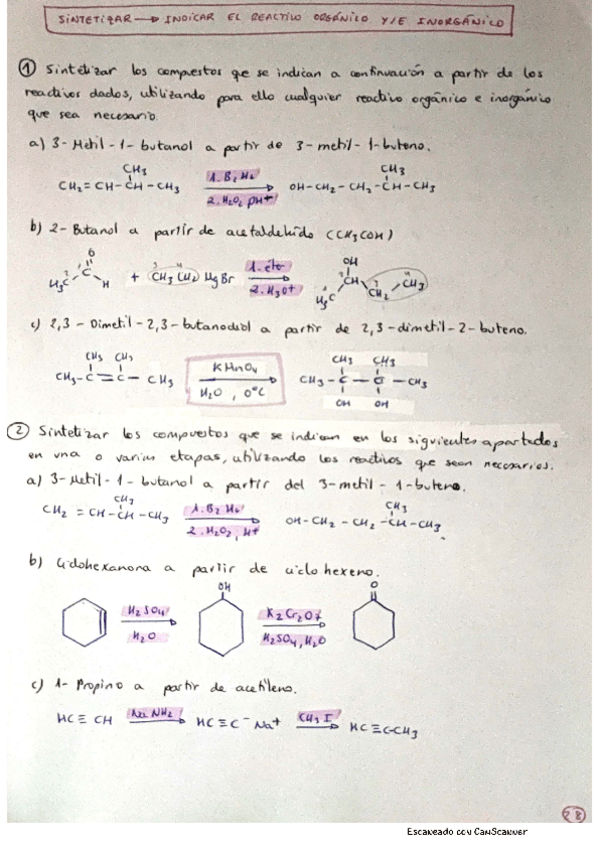 SINTETIZAR → INDICAR EL REACTIVO ORGÁNICO Y/E INORGÁNICO
① Sintetizar los compuestos que se indican a continuación a partir de los
reactivos dados, utilizando para ello cualquier reactivo orgánico e inorgánico
que sea necesario.
a) 3-Metil-1-butanol a partir de 3-metil-1-buteno.
CH3 CH3
CH2=CH-CH-CH3 1. B2H6 OH-CH2-CH2-CH-CH3
2. H2O2, pH+
b) 2-Butanol a partir de acetaldehído (CH3COH)
O OH
H3C C H + CH3CH2MgBr 1. éter H3C CH CH2 CH3
2. H3O+
c) 2,3-Dimetil-2,3-butanodiol a partir de 2,3-dimetil-2-buteno.
CH3 CH3 CH3 CH3
CH3-C=C-CH3 KMnO4 CH3-C-C-CH3
H2O, 0ºC OH OH
② Sintetizar los compuestos que se indican en los siguientes apartados
en una o varias etapas, utilizando los reactivos que sean necesarios.
a) 3-Metil-1-butanol a partir del 3-metil-1-buteno.
CH3 CH3
CH2=CH-CH-CH3 1. B2H6 OH-CH2-CH2-CH-CH3
2. H2O2, H+
b) Ciclohexanona a partir de ciclohexeno.
OH O
H2SO4 K2Cr2O7
H2O H2SO4, H2O
c) 1-Propino a partir de acetileno.
HC≡CH NaNH2 HC≡C⁻Na+ CH3I HC≡C-CH3
28
Escaneado con CamScanner